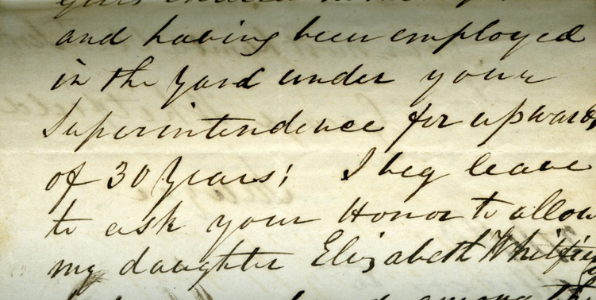 and having been employed
in the yard under your
Superintendence for upwards
of 30 Years; I beg leave
to ask your Honor to allow
my daughter Elizabeth